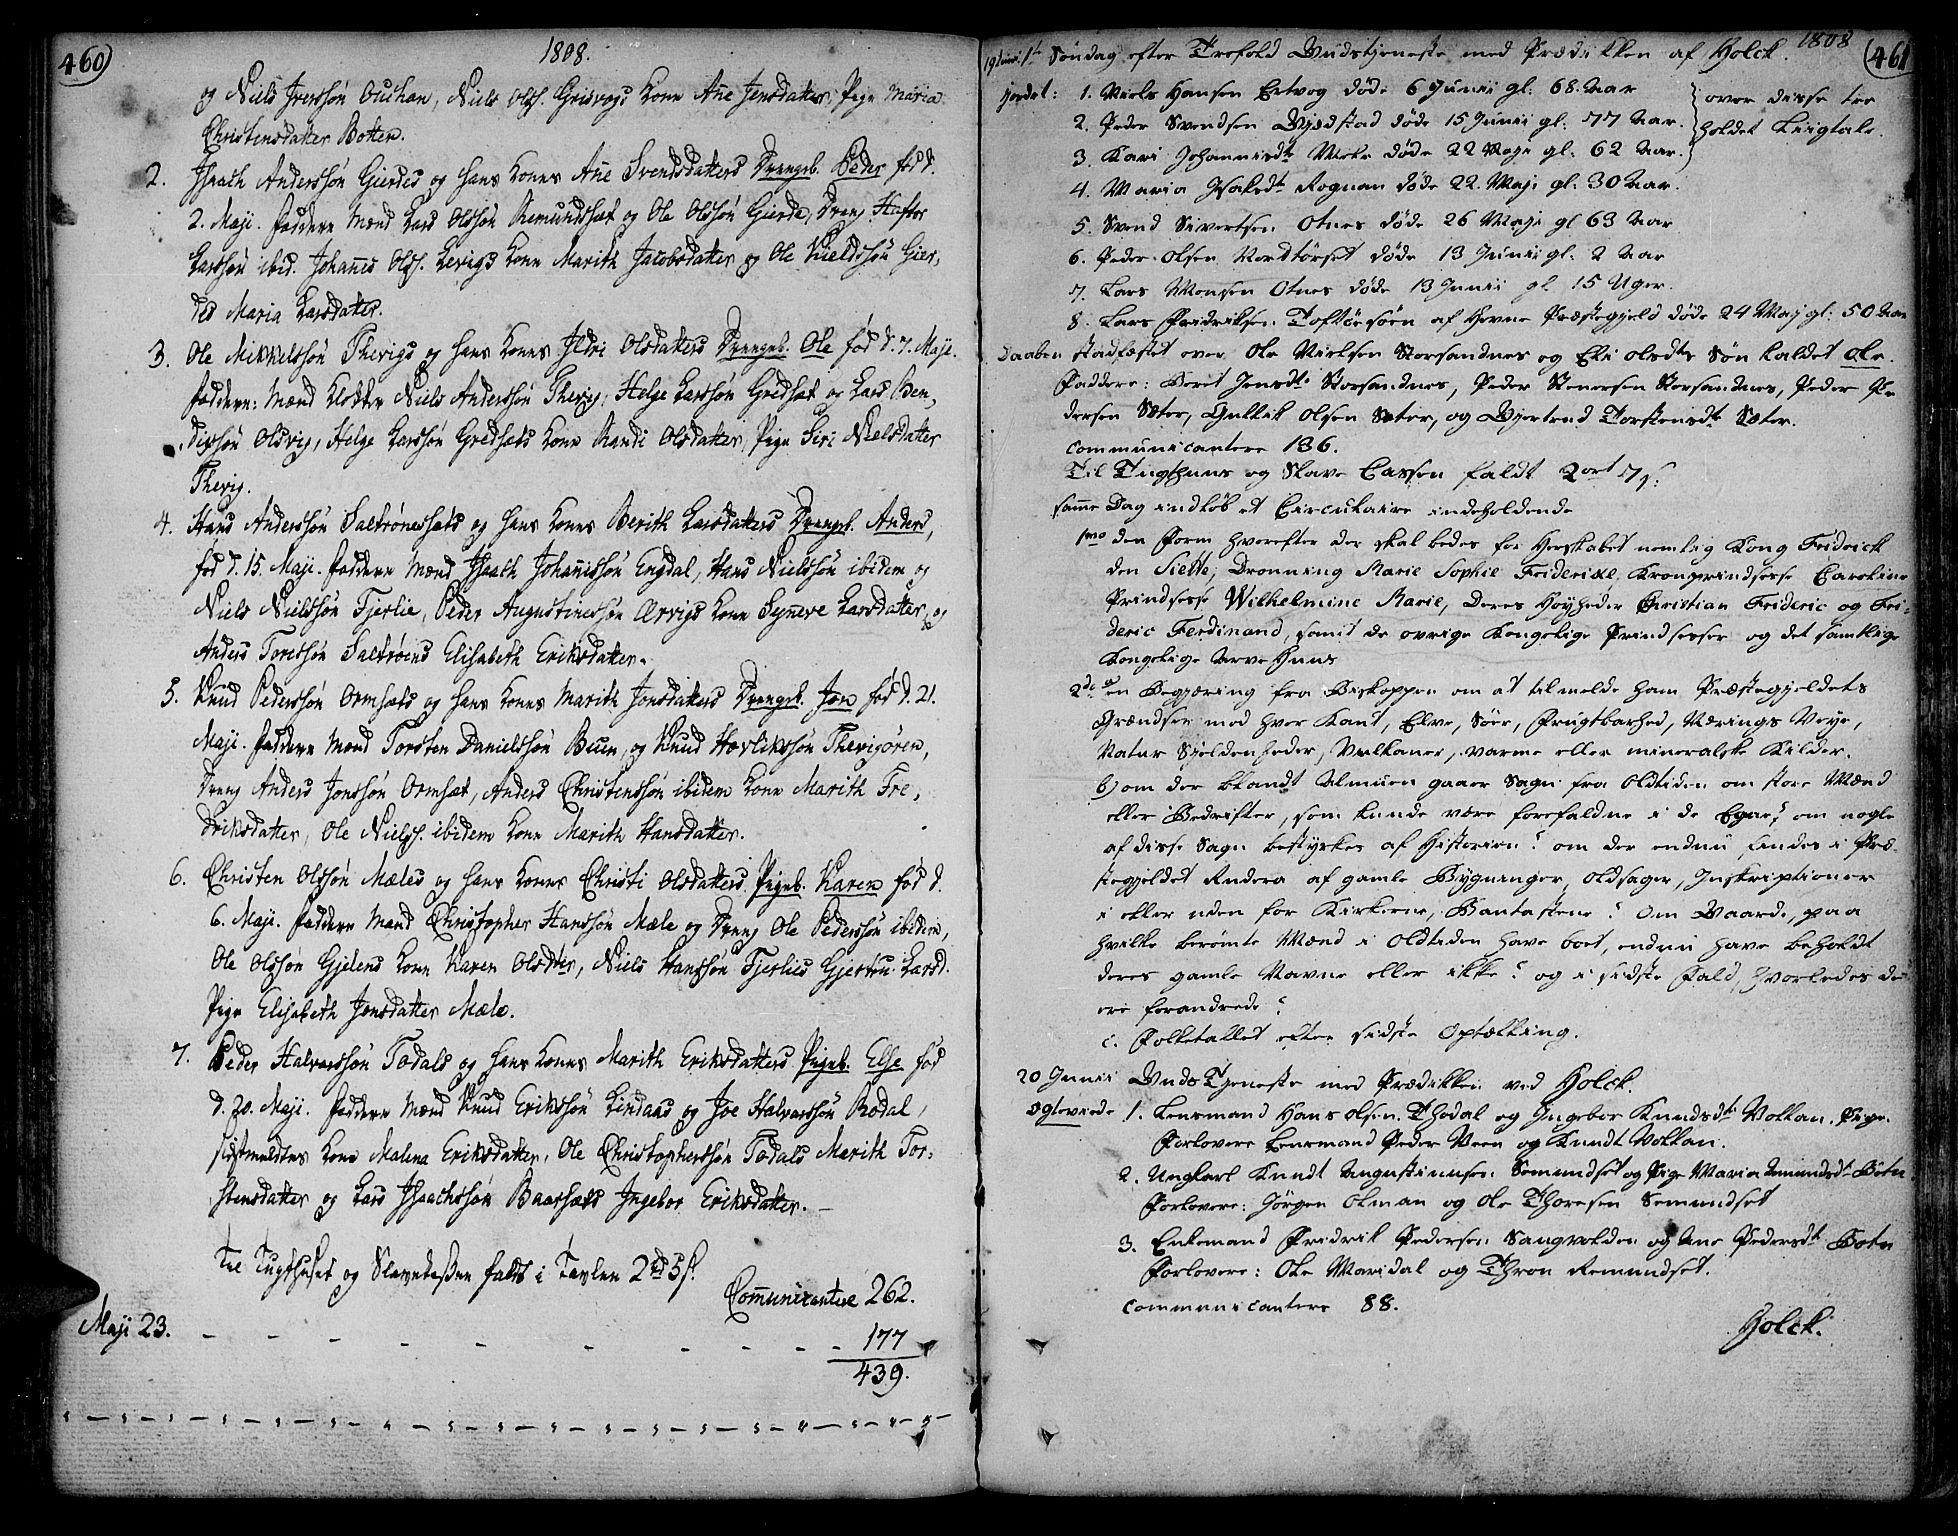 460
1808.
og Niels Iverssøn Ouchan, Niels Olss. Grisvogs Kone Ane Jensdatter, Pige Maria
Christensdatter Botten.
2. Isaach Anderssøn Gierdes og hans Kones Ane Svendsdatters Drengeb. Peder fød d.
2. Maji. Faddere Mænd Lars Olssøn Remundsæt og Ole Olssøn Gierde, Dreng
Larssøn ibid. Johanes Olss. Kone Marith Jacobsdatter og Ole Nieldssøn Gier,
des Maria Larsdatter.
3. Ole Mikkelssøn Thevigs og hans Kones Ildri Olsdatters Drengeb. Ole fød d. 7. Maji.
Faddere: Mænd Klokker Niels Anderssøn Thevig, Helge Larssøn Gredsæt og Lars Ben,
digssøn Olsvig, Helge Larssøn Gredsæts Kone Randi Olsdatter, Pige Siri Nielsdatter
Thevig.
4. Hans Anderssøn Saltrønessæts og hans Kones Berith Larsdatters Drengeb. Anders,
fød d. 15. Maji. Faddere Mænd Isaach Johanissøn Engdal, Hans Nielssøn ibidem og
Niels Nielssøn Fjerlie, Peder Augustinussøn Ørvigs Kone Synneve Larsdatter, og
Anders Toressøn Saltrøens Elisabeth Eriksdatter.
5. Knud Pederssøn Ormsæts og hans Kones Marith Jonsdatters Drengeb. Jon fød d. 21.
Maji. Faddere Mænd Torsten Danielssøn Buen, og Knud Hovlikssøn Thevigøren,
Dreng Anders Jonssøn Ormsæt, Anders Christenssøn ibidem Kone Marith Fre,
driksdatter, Ole Nielss. ibidem Kone Marith Hansdatter.
6. Christen Olssøn Mæles og hans Kones Christi Olsdatters Pigeb. Karen fød d.
6. Maji. Faddere Mænd Christopher Hanssøn Mæle og Dreng Ole Pederssøn ibidem,
Ole Olssøn Gjelens Kone Karen Olsdtr, Niels Hanssøn Fjerlies Gjertru Larsd.
Pige Elisabeth Jensdatter Mæle.
7. Peder Halvorssøn Todals og hans Kones Marith Eriksdatters Pigeb. Else fød
d. 20. Maji. Faddere Mænd Knud Erikssøn Lindaas og Joe Halvorssøn Rodal,
Kone Malena Eriksdatter, Ole Christopherssøn Todals Marith Tor,
stensdatter og Lars Isaachssøn Baarsæts Ingebor Eriksdatter.
Til Tugthuset og Slavekassen faldt i Tavlen 2 rd 5 s.
Communicantere 262.
Maji 23. - - - - - - - - - 177
439.
1808
461
19 Junii 1te Søndag efter Trefold Gudstjeneste med Prædikken af Holck.
Jordet: 1. Niels Hansen Eetvog døde 6 Junii gl: 68. Aar
2. Peder Svendsen Gjedstad døde 15 Junii gl: 77 Aar.
3. Kari Johannisdt døde 22 Maji gl: 62 Aar.
over disse tre
holdet Liigtale.
4. Maria Isaksdt Rognan døde 22. Maji gl: 30 Aar.
5. Svend Sivertsen Otnes døde 26 Maji gl 63 Aar
6. Peder Olsen Nordtørset døde 13 Junii gl: 2 Aar
7. Lars Monsen Otnes døde 13 Junii gl 15 Uger.
8. Lars Fridriksen Toftøesøen af Hevne Præstegjeld døde 24 Maj gl: 50 Aar
Daaben stadfæstet over Ole Nielsen Storsandnes og Eli Olsdts Søn kaldet Ole.
Faddere: Beret Jensdt Storsandnes, Peder Stenersen Storsandnes, Peder Pe
dersen Sæter, Gullik Olsen Sæter, og Gjertrud Torstensdt Sæter.
Communicantere 136.
Til Tugthuus og Slave Cassen faldt 2 ort 7 s.
samme Dag indløb et Circulaire indeholdende
1mo den Form hvorefter der skal bedes for Herskabet nemlig Kong Friderich
den Siette, Dronning Marie Sophie Friderike, Kronprindsesse Caroline
Prindsesse Wilhelmine Marie, deres Høyheder Christian Frideric og Fri-
deric Ferdinand, samt de øvrige Kongelige Prindsesser og det samtlige
Kongelige Arve Huus
2do en Begjæring fra Biskoppen om at tilmelde ham Præstegjeldets
Grændser mod hver Kant, Elve, Søer, Frugtbarhed, Nærings Veye,
Natur Sjeldenheder, Vulkaner, varme eller mineralske Kilder.
b) om der blandt Almuen gaaer Sagn fra Oldtiden om store Mænd
eller Bedrifter, som kunde være forefaldne i de Egne, om nogle
af disse Sagn bestyrkes af Historien? om der endnu findes i Præ-
stegjeldet Rudera af gamle Bygninger, Oldsager, Inskriptioner
i eller uden for Kirkerne, Bautastene? Om Gaarde, paa
hvilke berømte Mænd i Oldtiden have boet, endnu have beholdt
deres gamle Navne eller ikke? og i sidste Fald, hvorledes de
ere forandrede?
c. Folketallet efter sidste Optælling.
20 Junii Guds Tjeneste med Prædikken ved Holck.
Ogtoviede 1. Lensmand Hans Olsen Thodal og Ingebor Knudsdt Vollan. Pige.
Forlovere Lensmand Peder Veen og Knudt Vollan.
2. Ungkarl Knudt Augustinusen Semundset og Pige Maria Amundsdt Botn
Forlovere: Jørgen Olman og Ole Thoresen Semundset
3. Enkemand Fridrik Pedersen Sangvolden og Ane Pedersdt Botn
Forlovere: Ole Maridal og Thron Remundset.
Communicantere 88.
Holck.